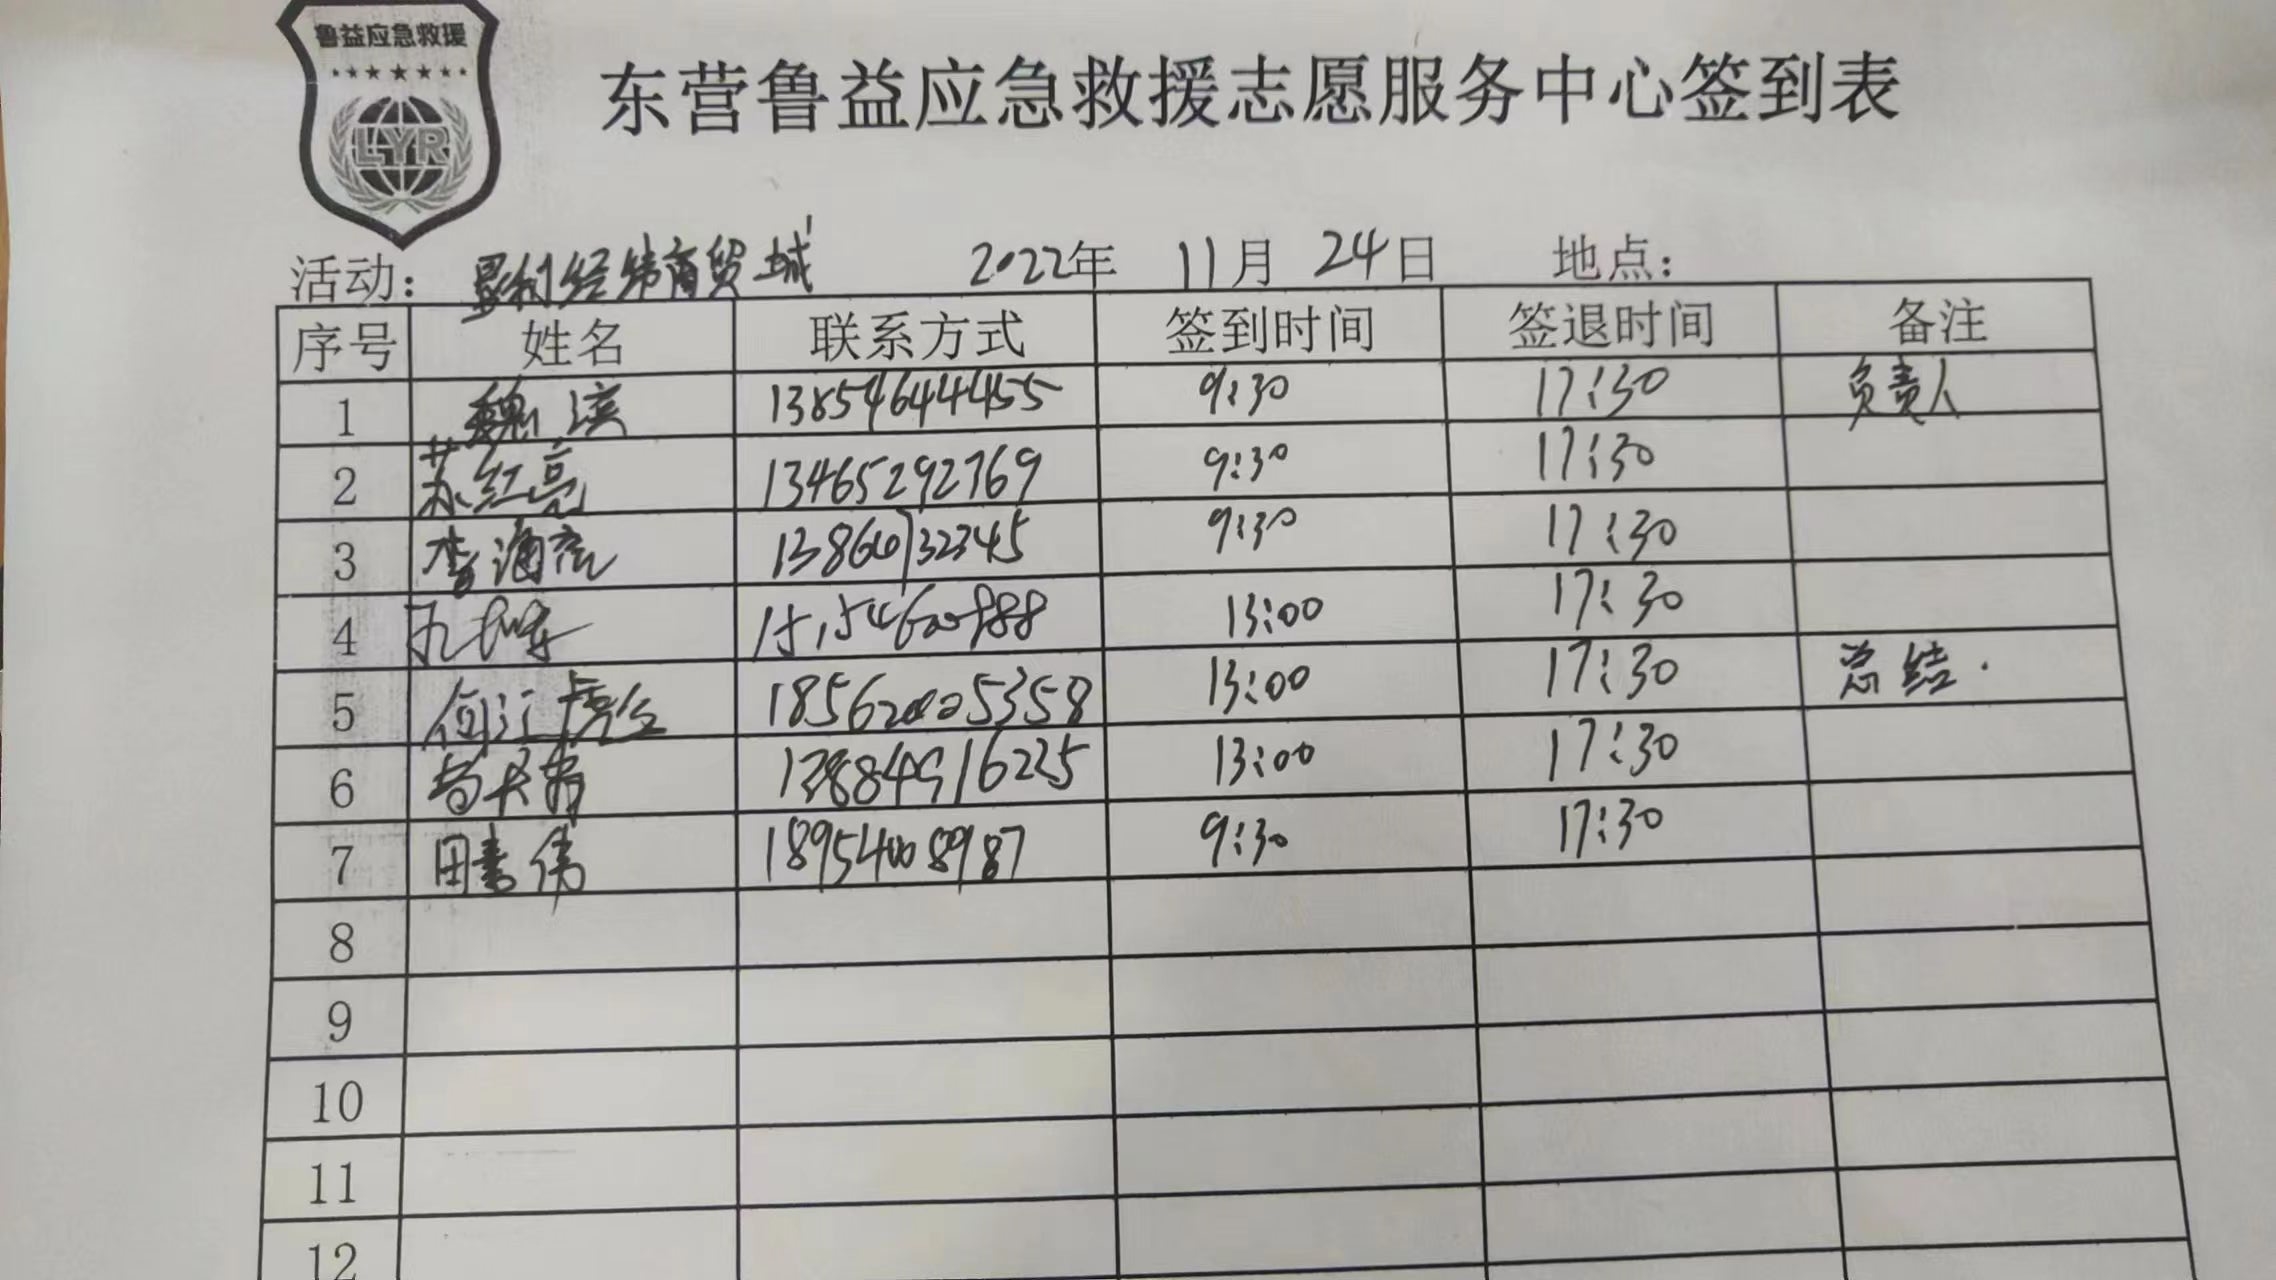 鲁益应急救援
LYR
东营鲁益应急救援志愿服务中心签到表
活动： 垦利经纬商贸城 2022年 11月 24日 地点：
序号 姓名 联系方式 签到时间 签退时间 备注
1 魏滨 13854644455 9:30 17:30 负责人
2 苏红亮 13465292769 9:30 17:30
3 李海亮 13864732345 9:30 17:30
4 13:00 17:30
5 18562005358 13:00 17:30 总结.
6 13884916225 13:00 17:30
7 田书伟 18954008987 9:30 17:30
8
9
10
11
12